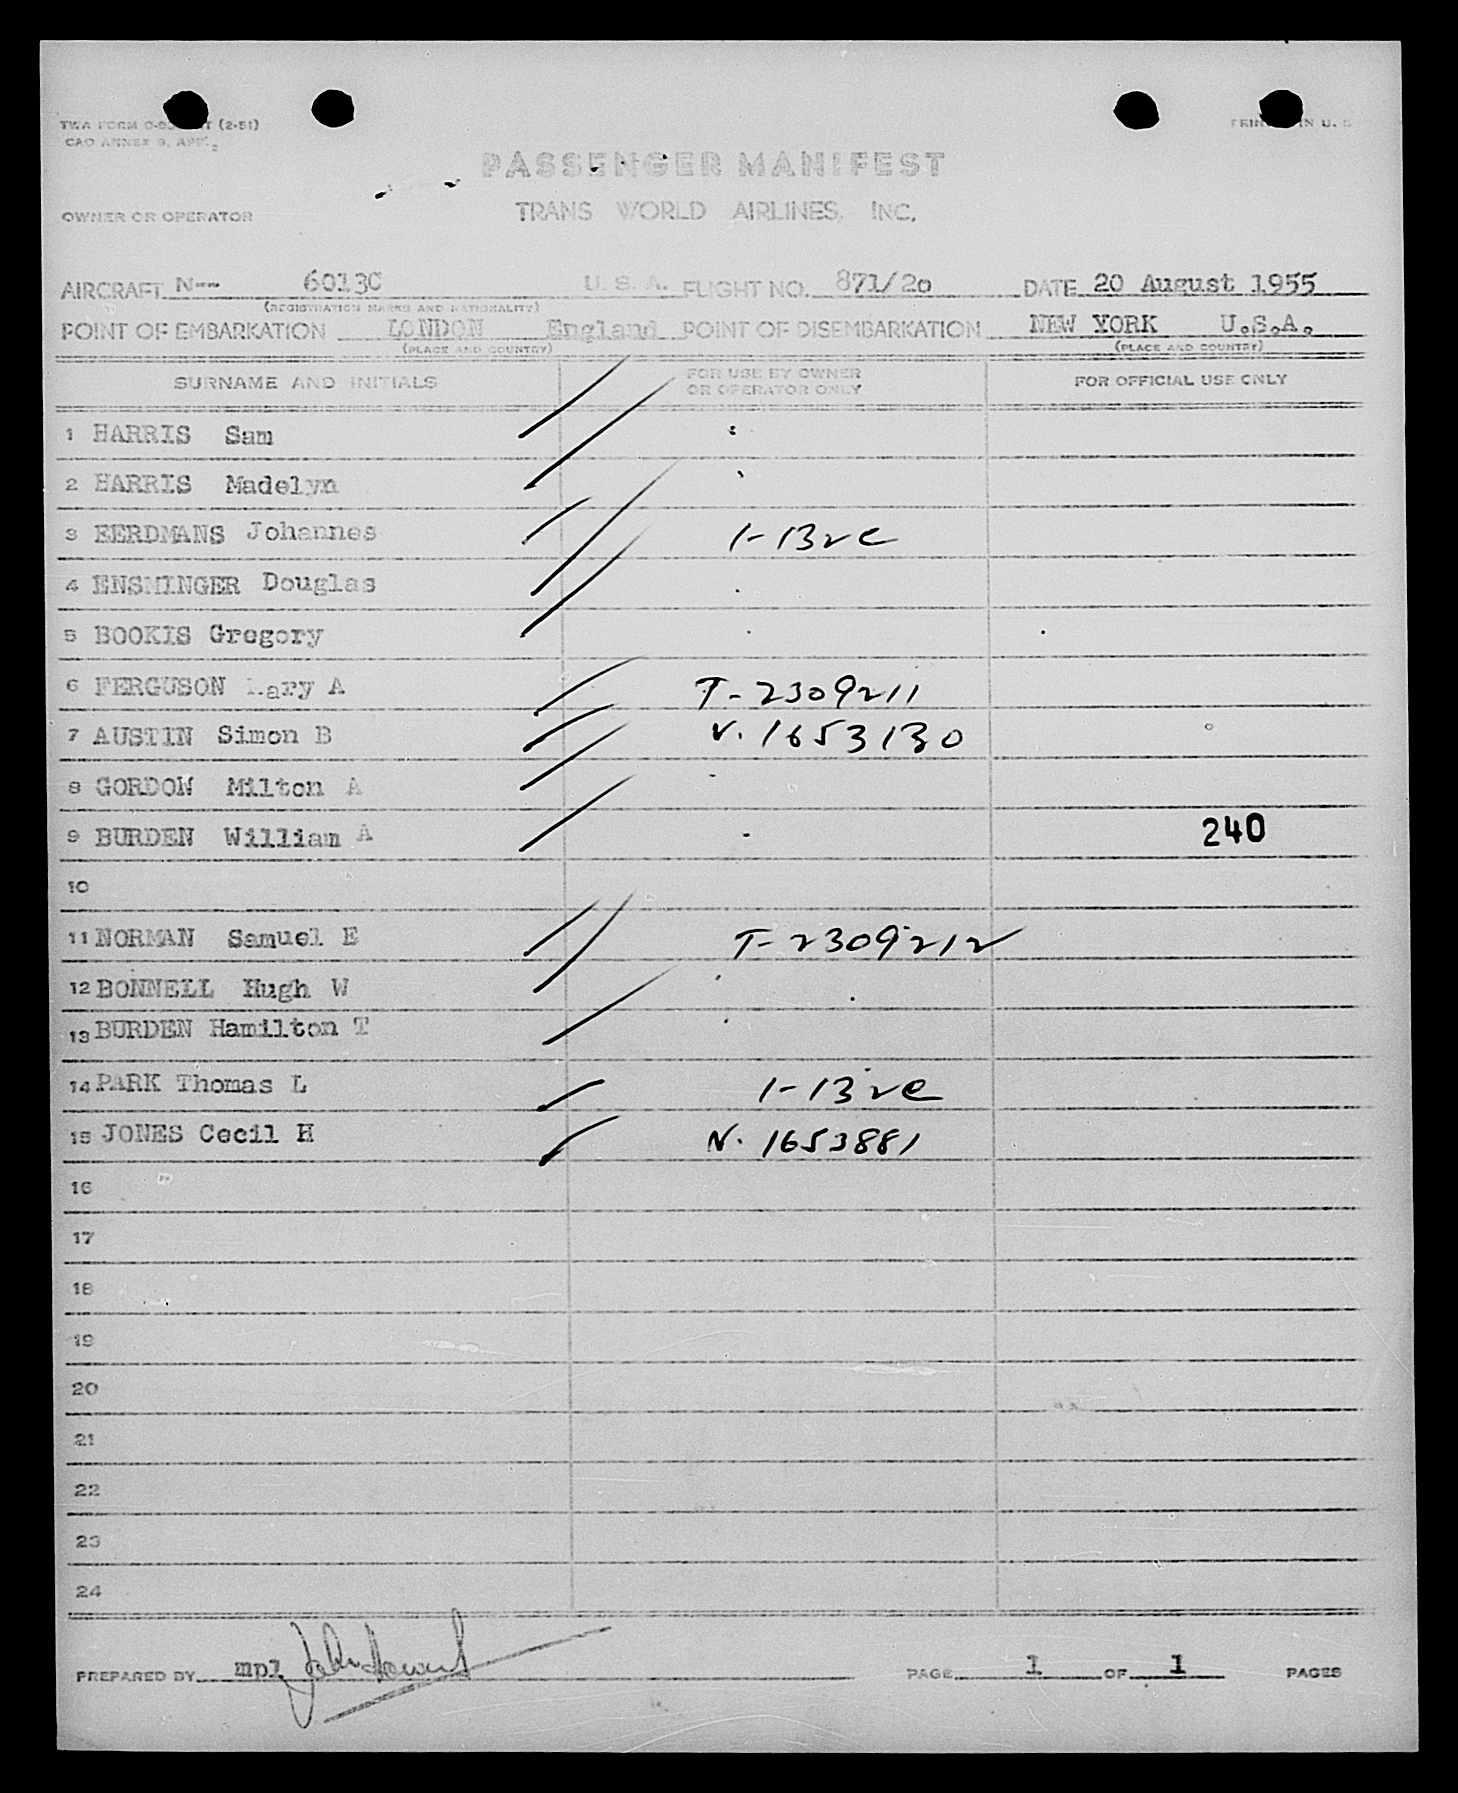 TWA FORM (2-51)
PRINTED IN U. S.
CAO ANNEX 9, APP. 2
PASSENGER MANIFEST
OWNER OR OPERATOR TRANS WORLD AIRLINES, INC.
AIRCRAFT N-- 6013C U. S. A. FLIGHT NO. 871/20 DATE 20 August 1955
(REGISTRATION MARKS AND NATIONALITY)
POINT OF EMBARKATION LONDON England POINT OF DISEMBARKATION NEW YORK U.S.A.
(PLACE AND COUNTRY) (PLACE AND COUNTRY)
SURNAME AND INITIALS FOR USE BY OWNER OR OPERATOR ONLY FOR OFFICIAL USE ONLY
1 HARRIS Sam
2 HARRIS Madelyn
3 EERDMANS Johannes 1-
4 ENSMINGER Douglas
5 BOOKIS Gregory
6 FERGUSON Mary A T-2309211
7 AUSTIN Simon B V. 1653130
8 GORDON Milton A
9 BURDEN William A 240
10
11 NORMAN Samuel E T-2309212
12 BONNELL Hugh W
13 BURDEN Hamilton T
14 PARK Thomas L 1-
15 JONES Cecil H V. 1653881
16
17
18
19
20
21
22
23
24
PREPARED BY mpl PAGE 1 OF 1 PAGES